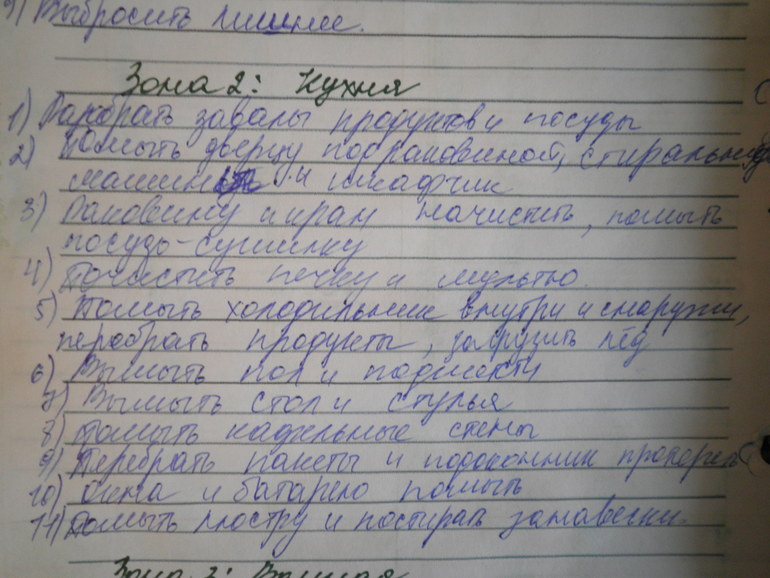 9) Выбросить лишнее.
Зона 2: Кухня
1) Разобрать завалы продуктов и посуды
2) Помыть дверцу под раковиной, стиральную
машину и шкафчик
3) Раковину и кран начистить, помыть
посудо-сушилку
4) Почистить печку и мультю.
5) Помыть холодильник внутри и снаружи,
перебрать продукты, загрузить лёд
6) Вымыть пол и подмести
7) Вымыть стол и стулья
8) Помыть кафельные стены
9) Перебрать пакеты и подоконник
10) Окна и батарею помыть
11) Помыть люстру и постирать занавески.
Зона 3: Ванная